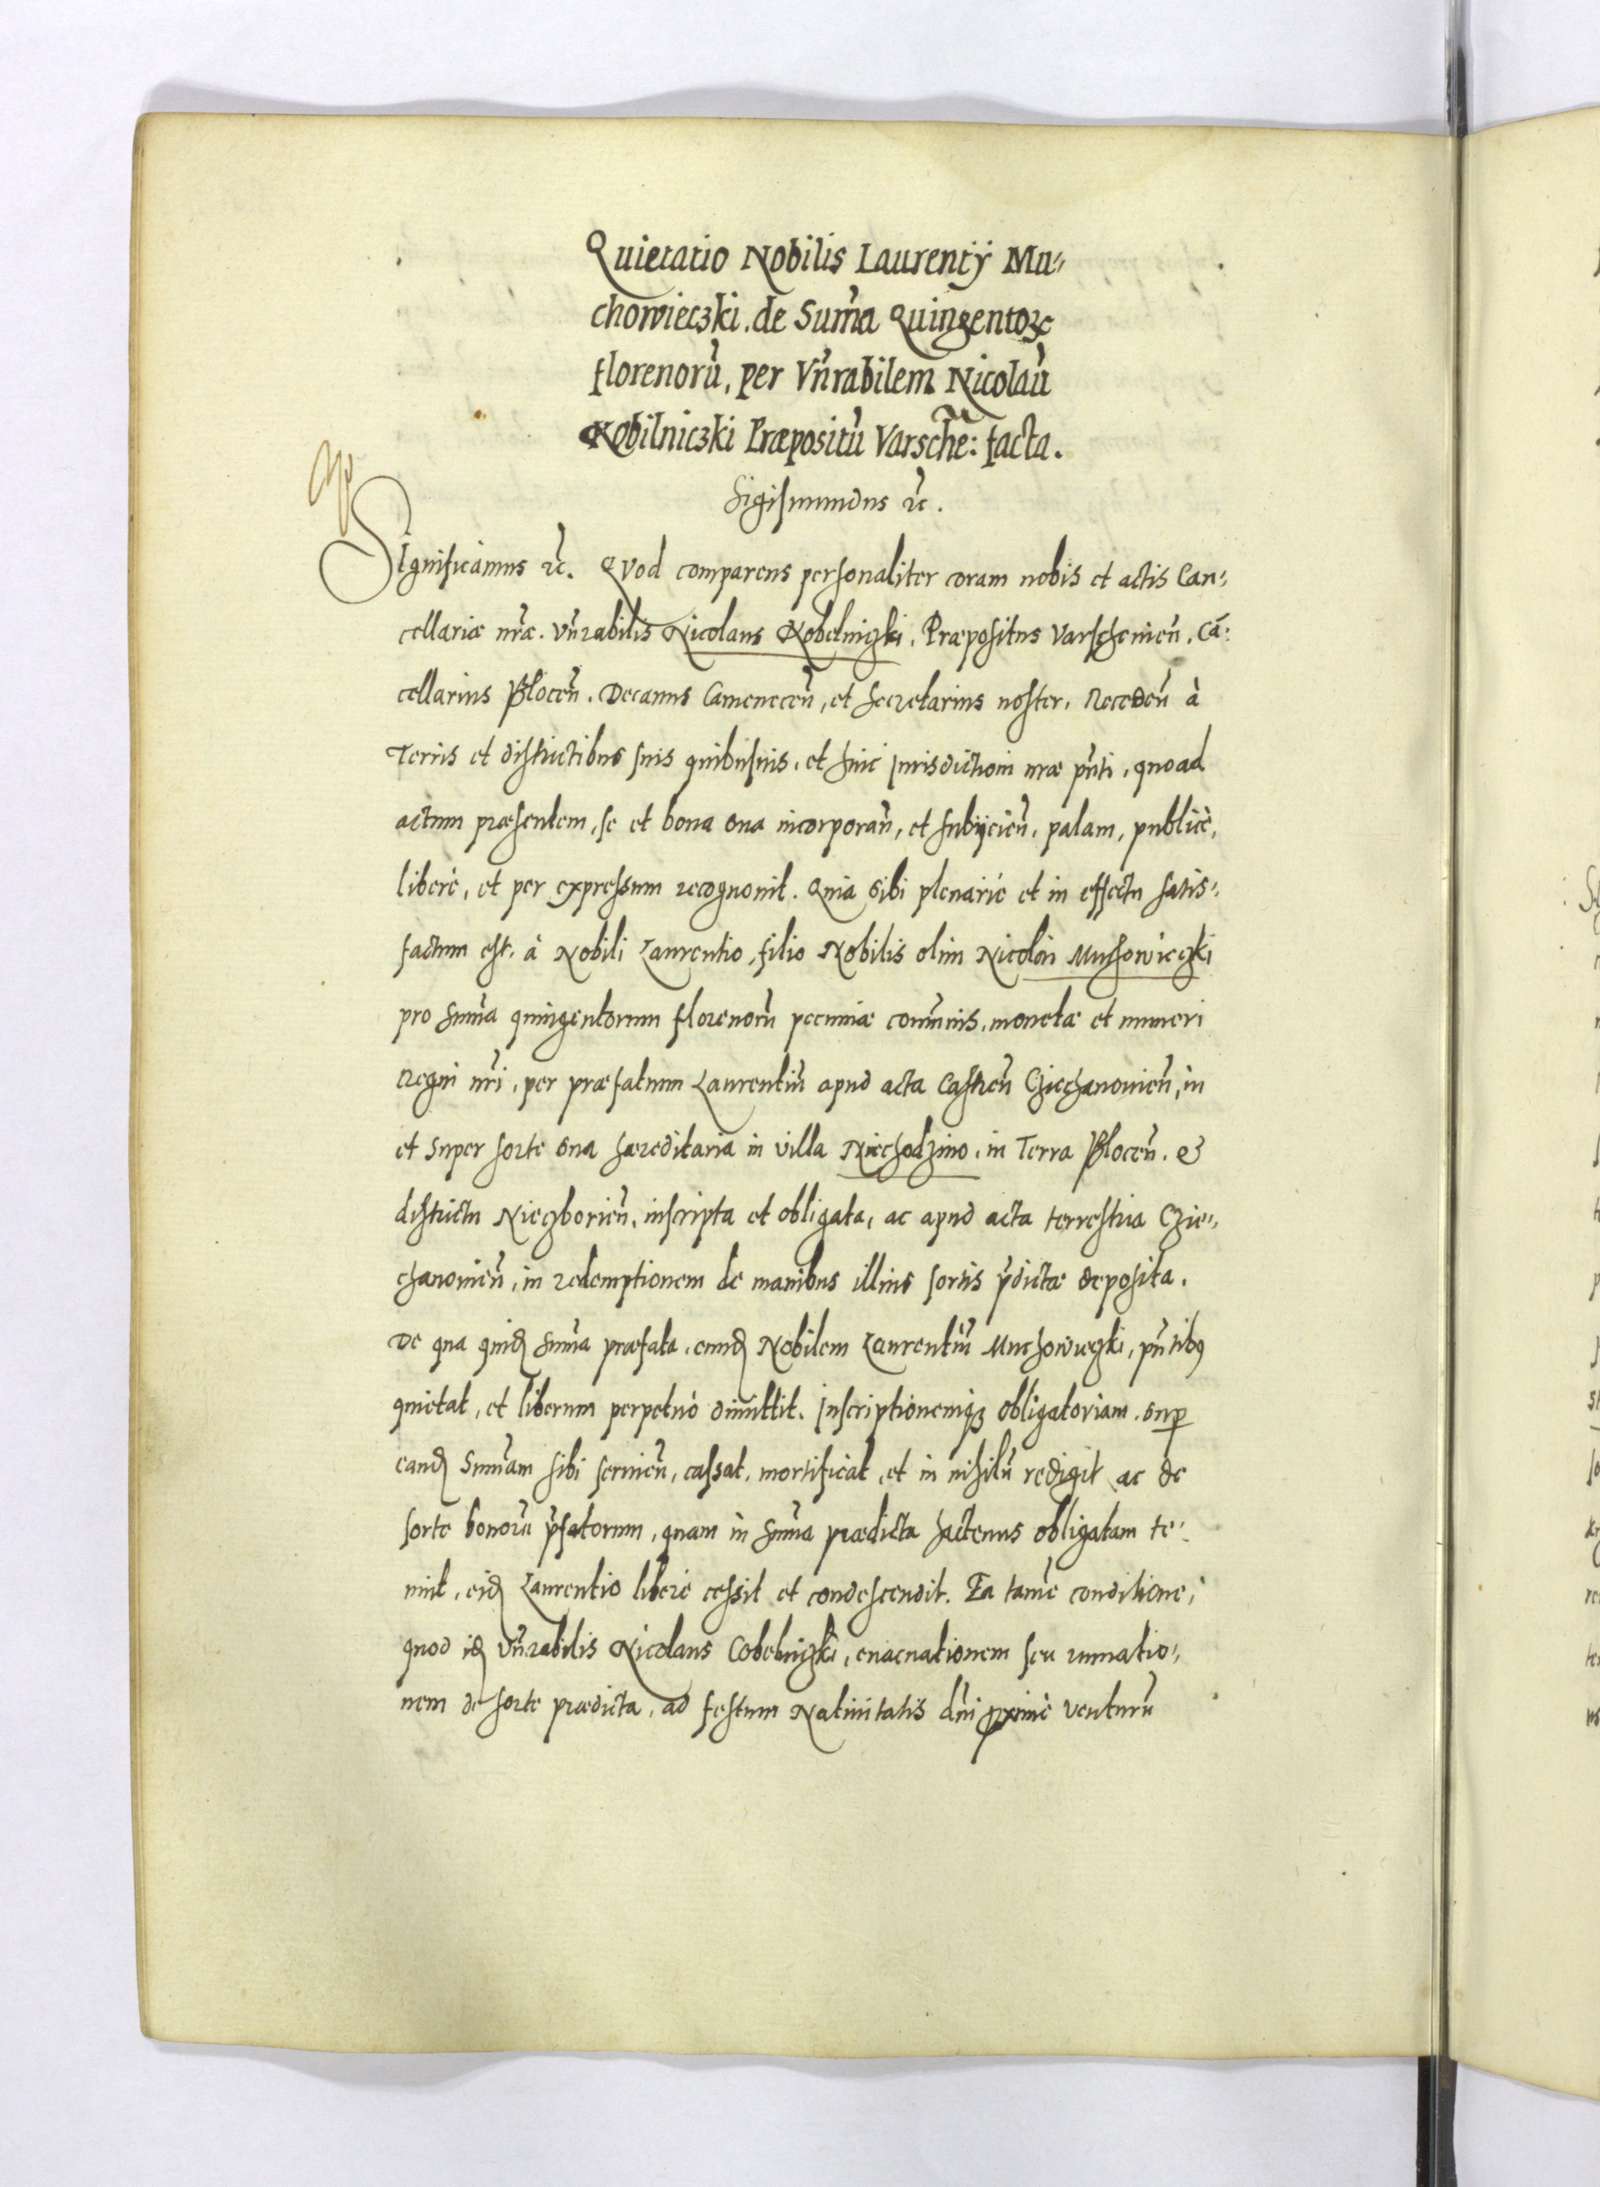 Quietatio Nobilis Laurentÿ Mu„
chowieczki. de Sum̃a Quingentoꝝ
florenorũ, per Vñrabilem Nicolaũ
Kobilniczki Præpositũ Varscheñ: facta.
Sigismundus ꝛc̃.
SIgnificamus ꝛc̃. QVod comparens personaliter coram nobis et actis Can„
cellariæ nr̃æ. Vñrabilis Nicolaus Kobelniczki. Præpositus Varscheuien̄. Cã„
cellarius Plocen̄. Decanus Camenecen̄, et Secretarius noster. Receden̄ à
Terris et districtibus suis quibusuis, et huic Jurisdictioni nr̃æ pñti, quoad
actum præsentem, se et bona sua incorporan̄, et subÿcien̄, palam, publicè,
liberè, et per expressum recognouit. Quia sibi plenariè et in effectu satis„
factum est, à Nobili Laurentio, filio Nobilis olim Nicolai Muchowieczki
pro sum̃a quingentorum florenorũ pecuniæ com̃unis, monetæ et numeri
Regni nr̃i, per præfatum Laurentiũ apud acta Castren̄ Cziechanouien̄, in
et super sorte sua hæreditaria in villa Niechodzino, in Terra Plocen̄. &
districtu Niedzborien̄, inscripta et obligata, ac apud acta terrestria Czie„
chanouien̄, in redemptionem de manibus illius sortis p̃dictæ deposita.
De qua quidẽ sum̃a præfata, eundẽ Nobilem Laurentiũ Muchowieczki, pñtibꝰ
quietat, et liberum perpetuò dimittit. Inscriptionemqꝫ obligatoriam, suꝑ
eandẽ Sum̃am sibi seruien̄, cassat, mortificat, et in nihilũ redigit ac de
sorte bonorũ p̃fatorum, quam in sum̃a prædicta hactenus obligatam te„
nuit, eidẽ Laurentio liberè cessit et condescendit. Ea tam̃e conditione,
quod idẽ Vñrabilis Nicolaus Cobelniczki, euacuationem seu rumatio„
nem de sorte prædicta, ad festum Natiuitatis dñi ꝓximè venturũ